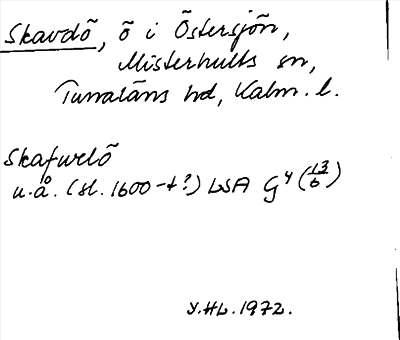 Skavdö, ö i Östersjön,
Misterhults sn,
Tunaläns hd, Kalm. l.
Skafwelö
u.å. (sl. 1600-t?) LSA G4 (13/6)
Y.HL. 1972.